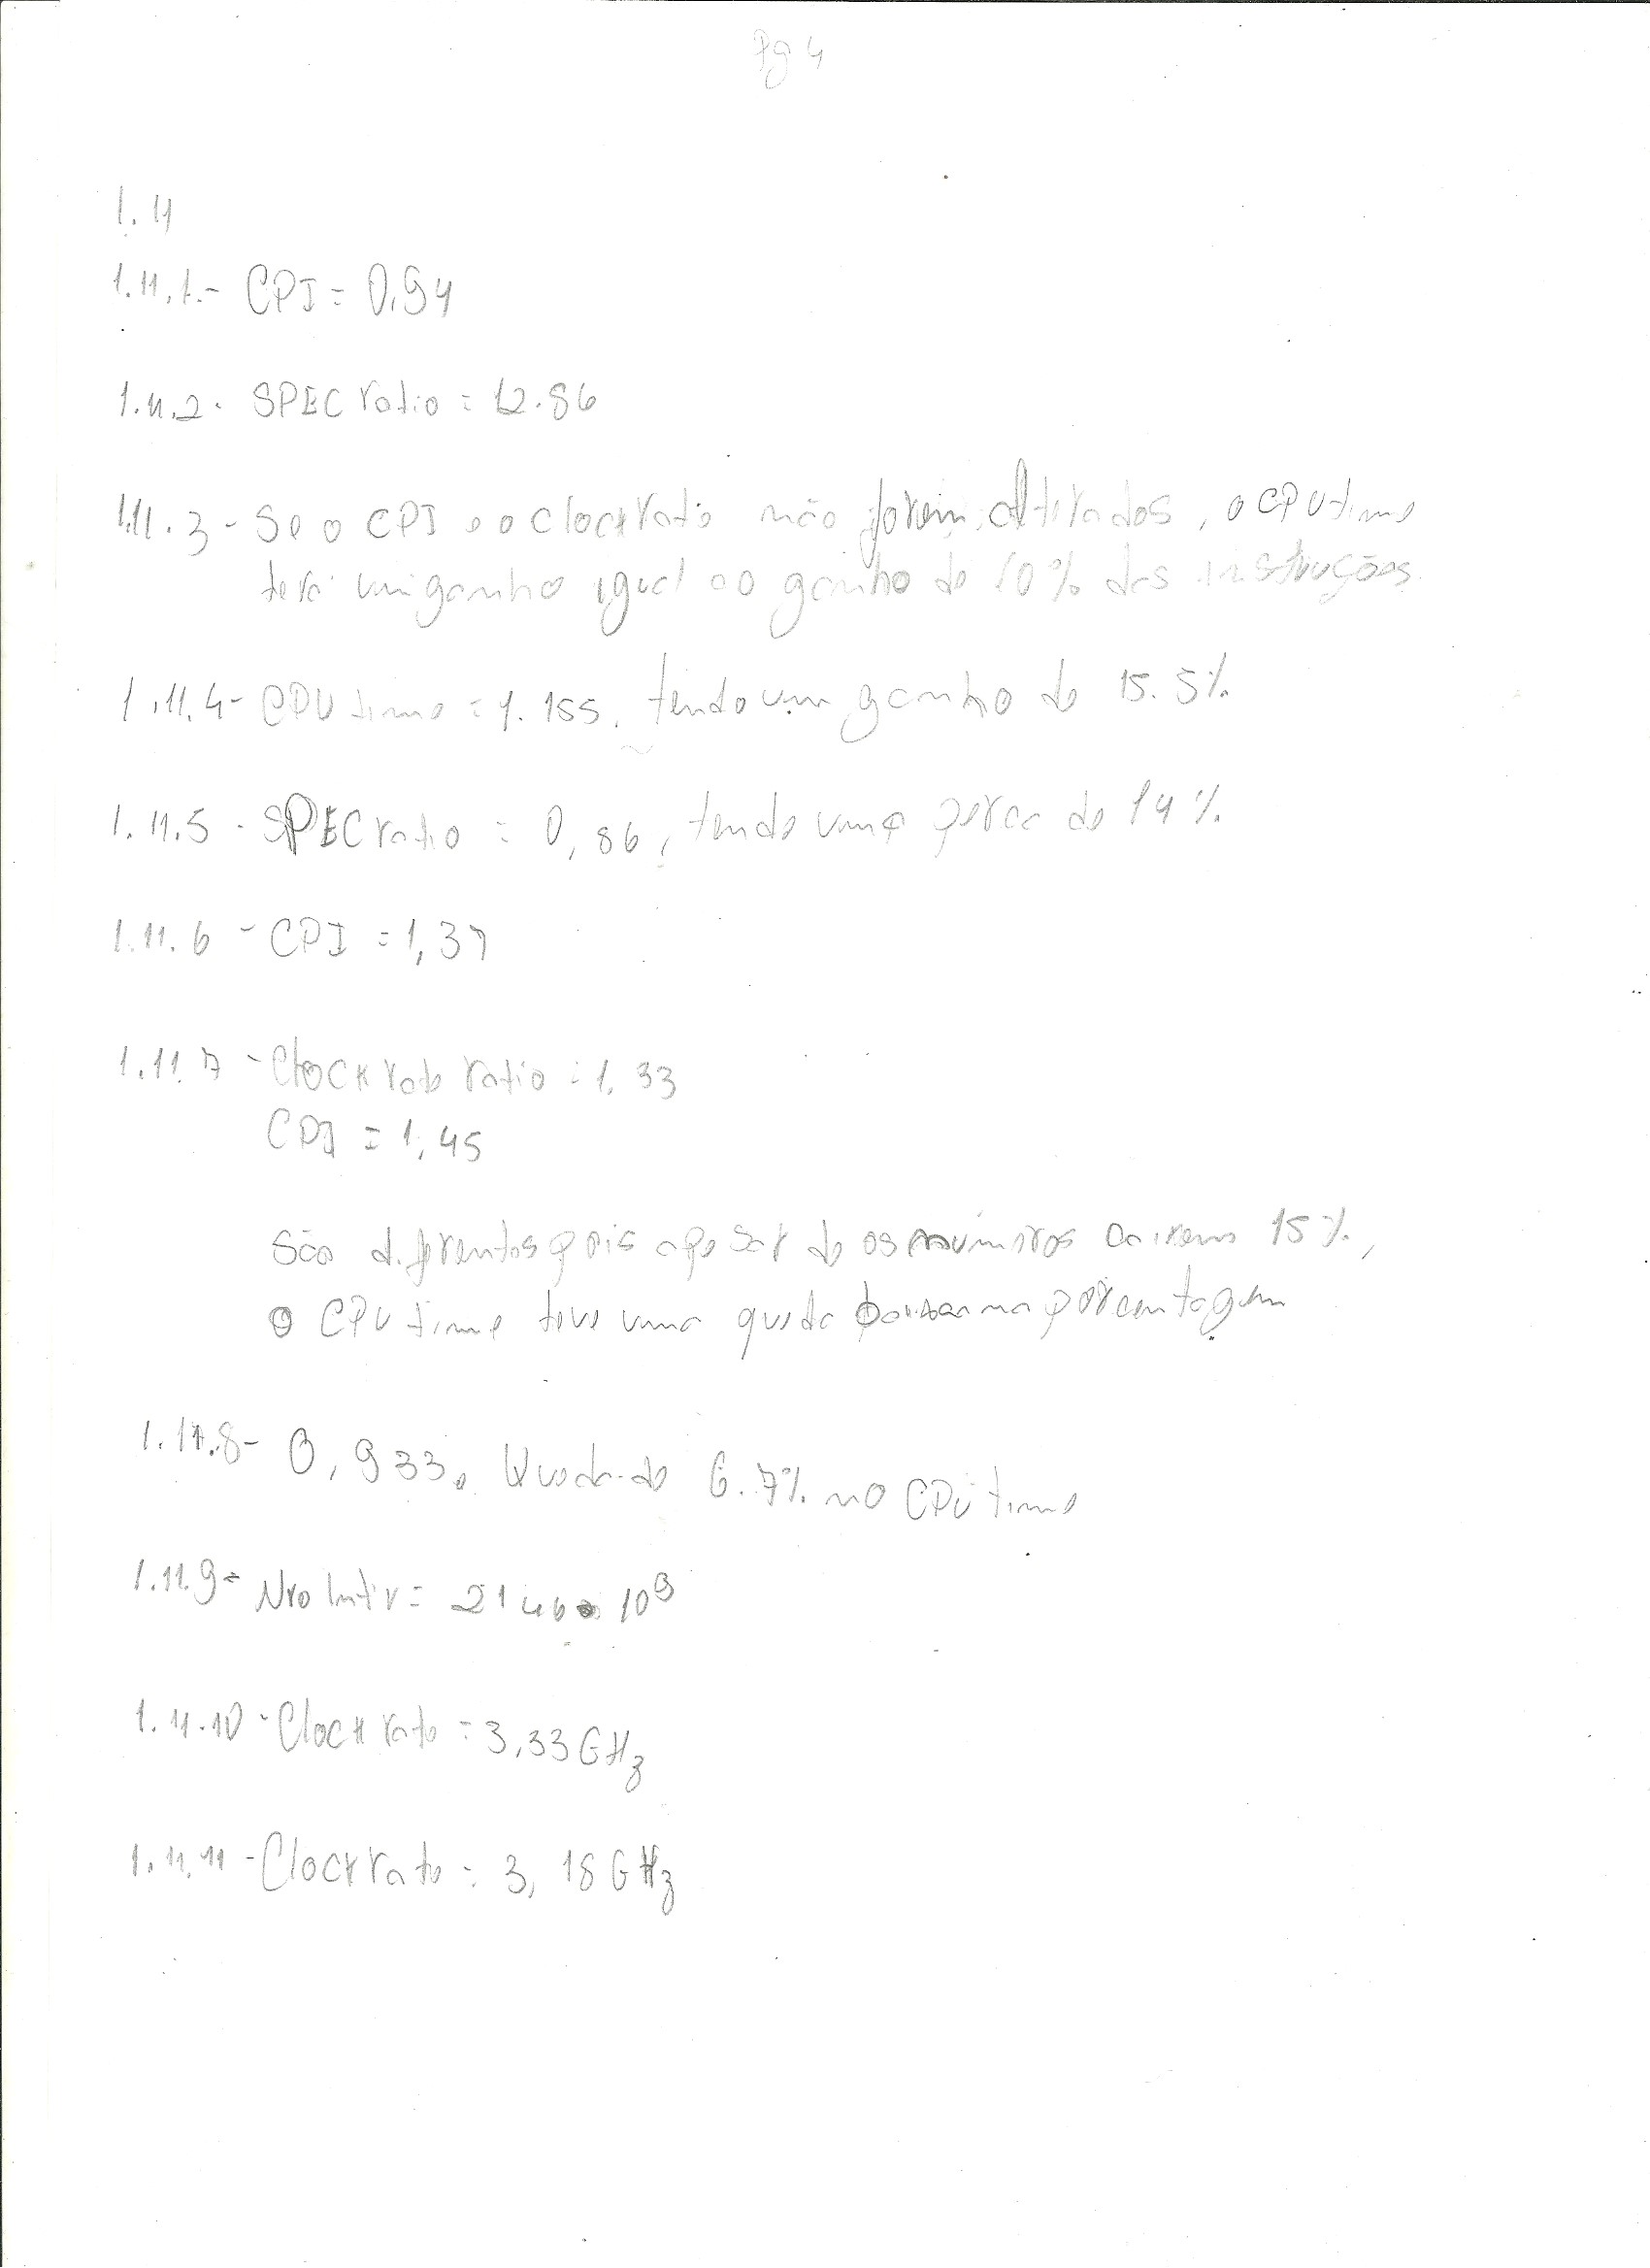 Pg 4
1.11
1.11.1 - CPI = 0,94
1.11.2 - SPEC ratio = 12.86
1.11.3 - Se o CPI e o clock rate não forem alterados, o CPU time
terá um ganho igual ao ganho de 10% das instruções.
1.11.4 - CPU time = 1.155, tendo um ganho de 15.5%
1.11.5 - SPEC ratio = 0,86, tendo uma perca de 14%
1.11.6 - CPI = 1,37
1.11.7 - Clock rate ratio = 1.33
CPI = 1,45
São diferentes pois apesar de os números cairem 15%,
o CPU time teve uma queda na porcentagem
1.11.8 - 0,933. Queda de 6.7% no CPU time
1.11.9 - Nro Intr = 2146 10⁹
1.11.10 - Clock rate = 3,33GHz
1.11.11 - Clock rate = 3,18GHz